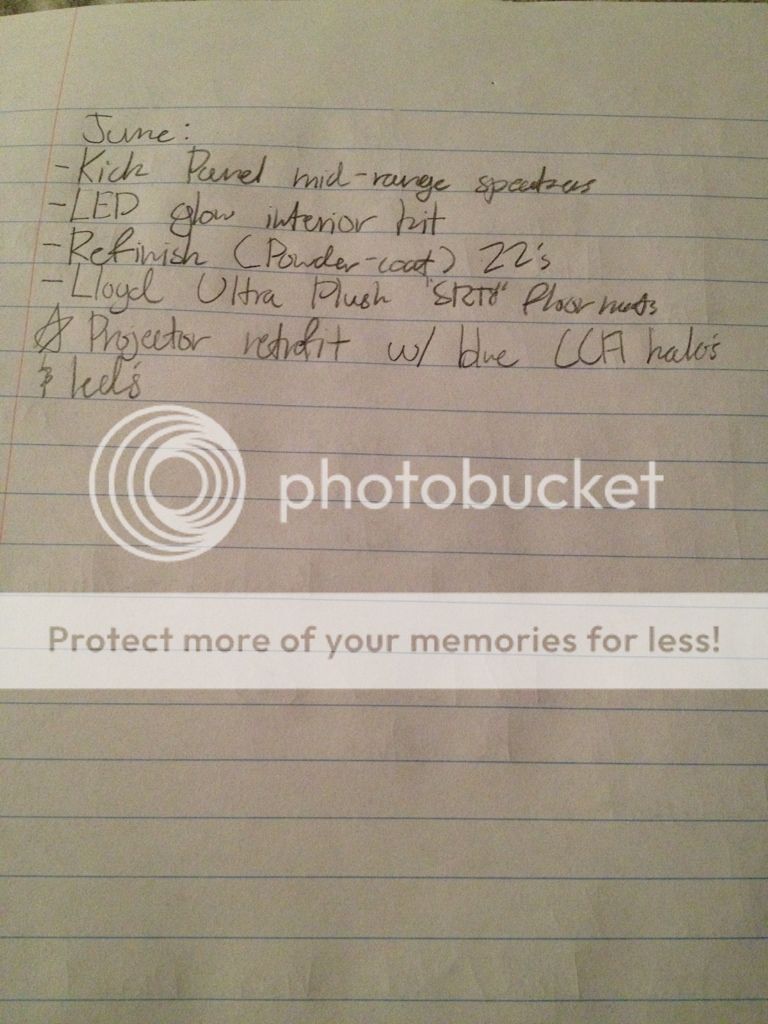 June:
- Kick Panel mid-range speakers
- LED glow interior kit
- Refinish (Powder-coat) 22's
- Lloyd Ultra Plush "SRT8" Floor mats
☆ Projector retrofit w/ blue CCFl halo's
& led's
photobucket
Protect more of your memories for less!